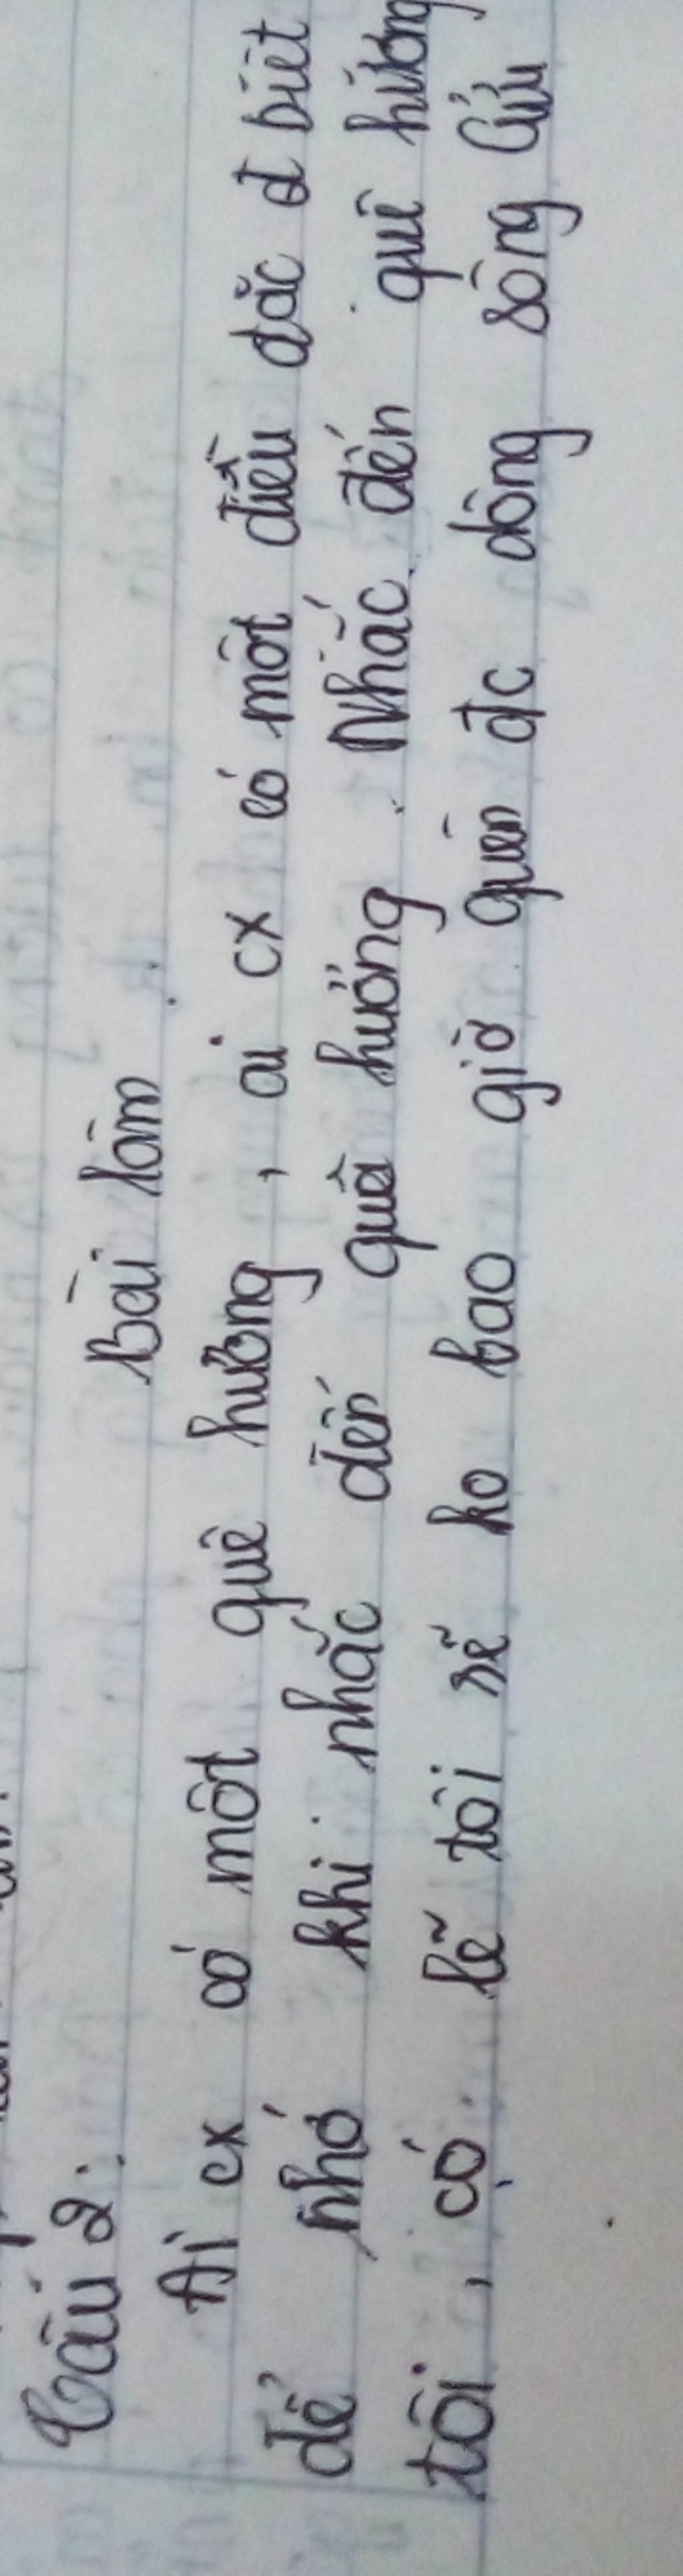 Câu 2:
Bài làm
Ai cx có một quê hương, ai cx có một điều đặc biệt
để nhớ khi nhắc đến quê hương. Nhắc đến quê hương
tôi, có lẽ tôi sẽ ko bao giờ quên đc dòng sông Cửu